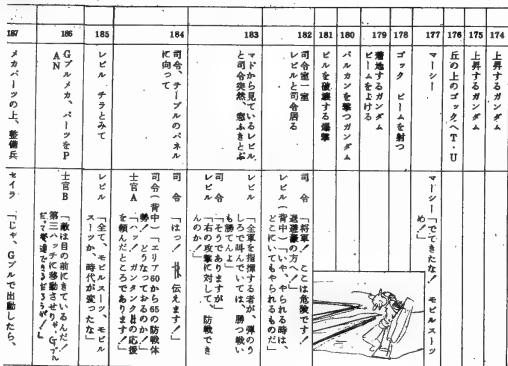 174
上昇するガンダム
175
上昇するガンダム
176
丘の上のゴックへT・U
177
マーシー
マーシー「でてきたな! モビルスーツめ!」
178
ゴック ビームを射つ
179
着地するガンダム
ビームをよける
180
バルカンを撃つガンダム
181
ビルを破壊する爆撃
182
司令室一室
レビルと司令居る
司令「将軍の、ここは危険です!
退避豪の方へ!」
レビル(背中)「いや、やられる時は、
どこにいてもやられるものだ」
183
マドから見ているレビル
と司令突然、窓ふきとぶ
レビル「全軍を指揮する者が、弾のう
しろで叫んでいては、勝つ戦い
も勝てんよ」
司令「そうでありますが」
レビル「右の攻撃に対して、防戦でき
んのか!」
184
司令、テーブルのパネル
に向って
司令「はっ! 伝えます!」
司令(背中)「エリア60から65の防戦体
勢! どうなっておるのか!」
士官A「ハッ! ガンタンクの応援
を頼んだところであります!」
185
レビル チラとみて
レビル「全て、モビルスーツ、モビル
スーツか、時代が変ったな」
186
Gブルメカ、パーツをP
AN
士官B「敵は目の前にきているんだ!
第三ハッチに移動させりゃ、Gブル
だって発進できるだろうが!」
187
メカパーツの上、整備兵
セイラ「じゃ、Gブルで出動したら、